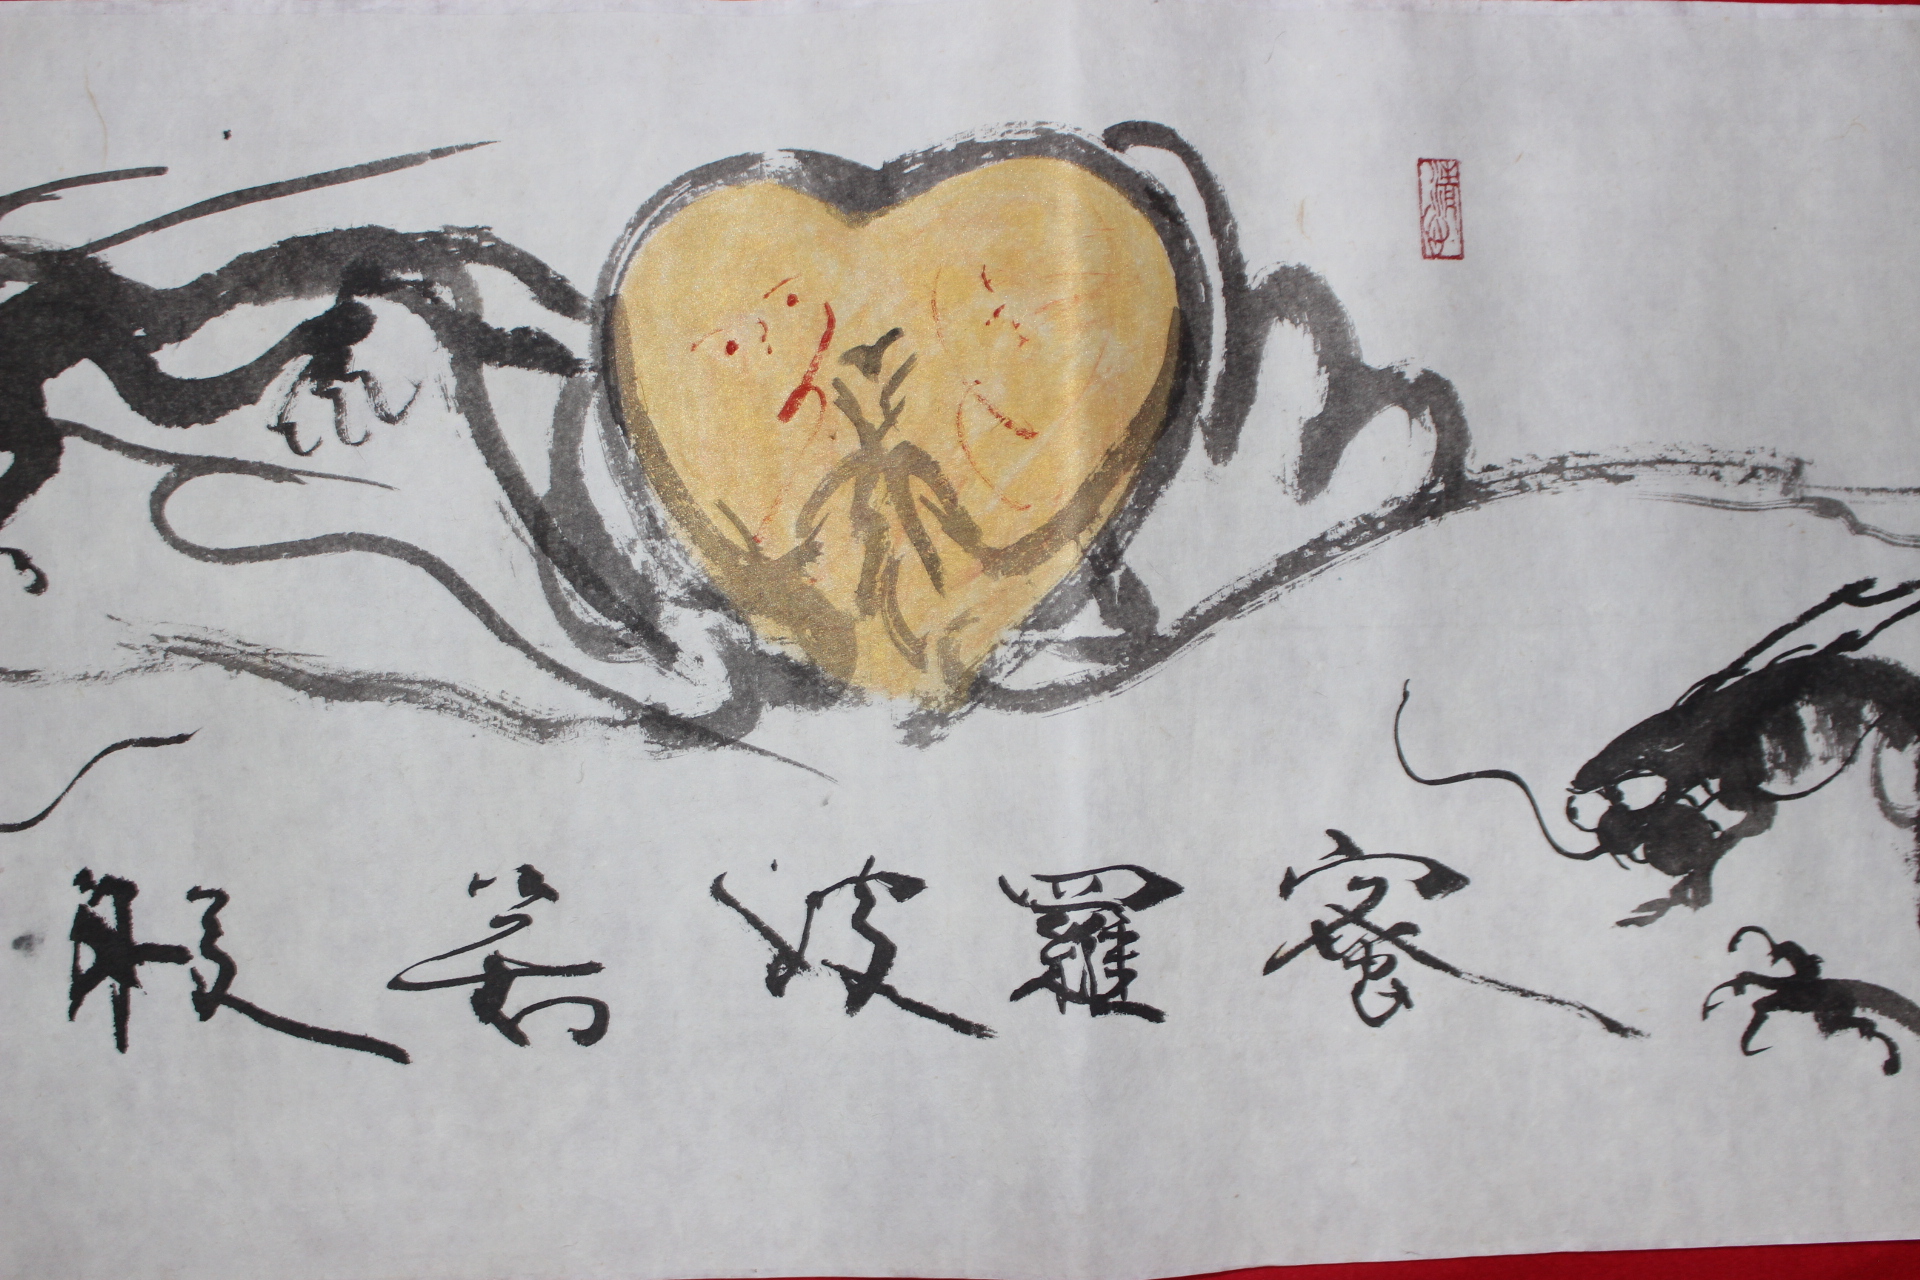 般若波羅蜜